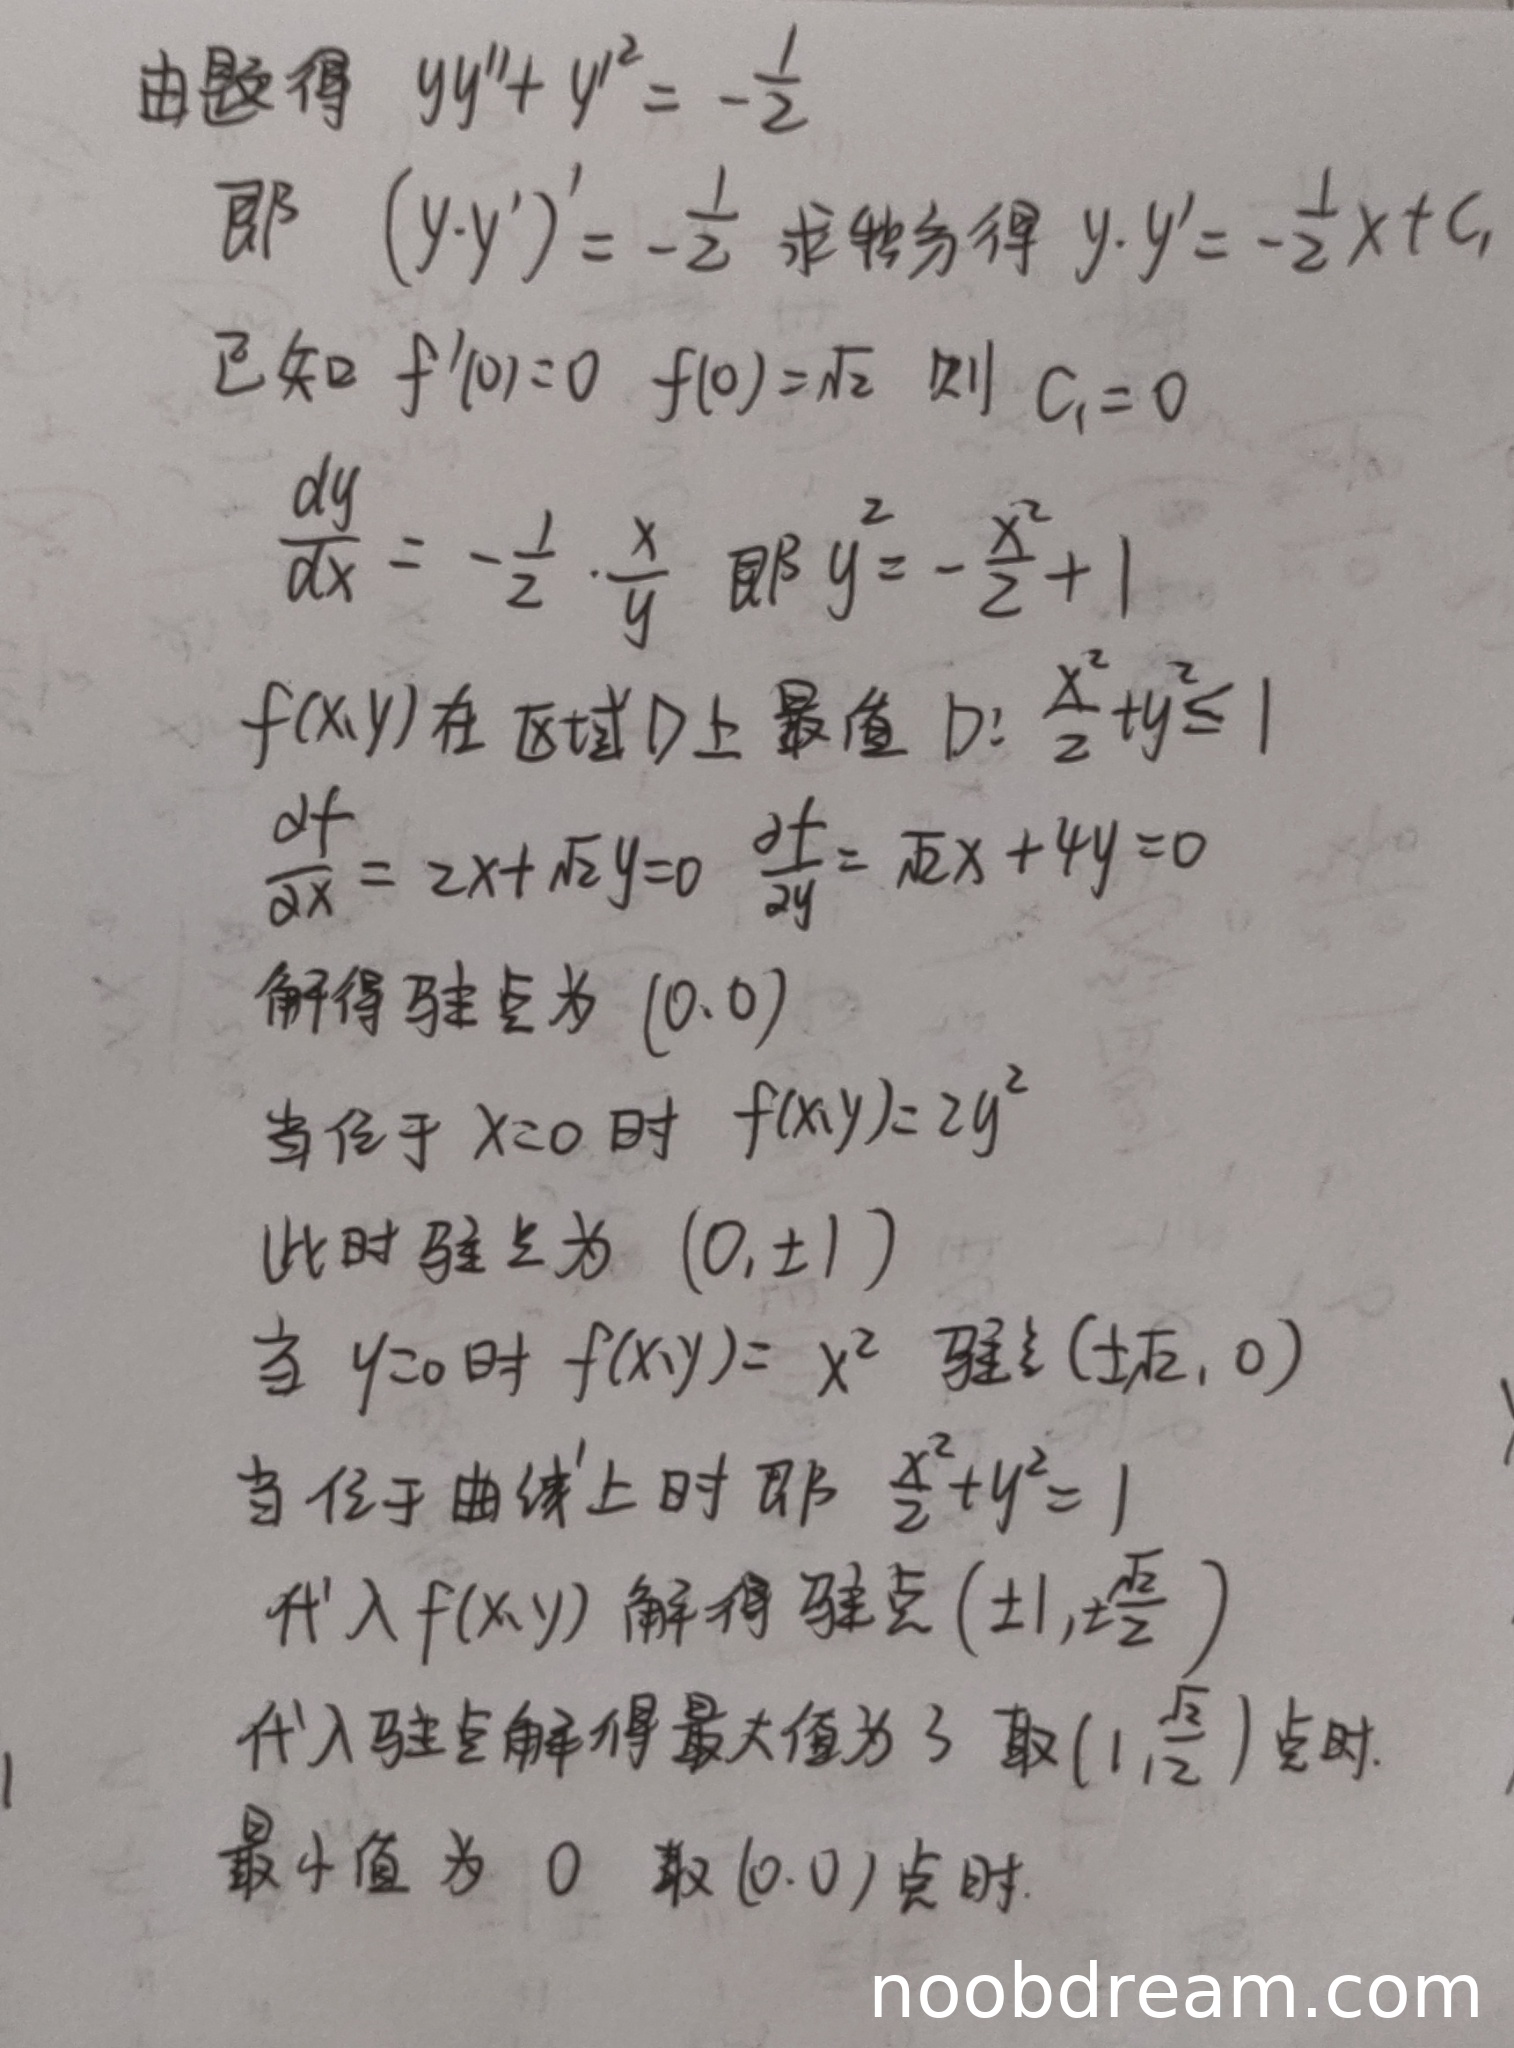 由题得 yy''+ y'² = -1/2
即 (y·y')' = -1/2 求积分得 y·y' = -1/2 x + C₁
已知 f'(0)=0 f(0)=√2 则 C₁=0
dy/dx = -1/2 · x/y 即 y² = -x²/2 + 1
f(x,y)在区域D上最值 D: x²/2 + y² ≤ 1
∂f/∂x = 2x+√2y=0 ∂f/∂y = √2x+4y=0
解得驻点为 (0.0)
当位于 x=0 时 f(x,y)=2y²
此时驻点为 (0,±1)
当 y=0时 f(x,y)= x² 驻点(±√2, 0)
当位于曲线上时 即 x²/2 + y² = 1
代入f(x,y) 解得驻点(±1,±√2/2)
代入驻点解得最大值为3 取(1,√2/2)点时.
最小值为 0 取(0.0)点时.
noobdream.com